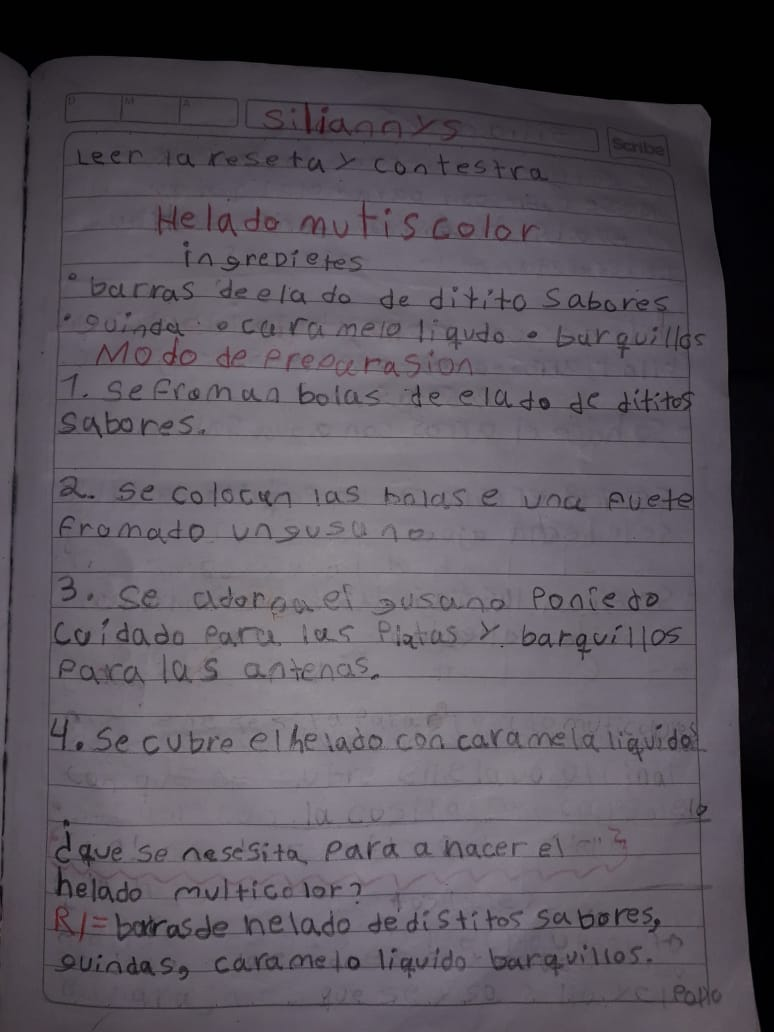 D M A
siliannys
Scribe
Leer la reseta y contestra
Helado mutiscolor
ingredietes
• barras de elado de ditito sabores
• guinda • caramelo liqudo • barquillos
Modo de preparasion
1. se froman bolas de elado de dititos
sabores.
2. se colocan las bolas e una fuete
fromado un gusano
3. se adorna el gusano poniedo
cuidado para las platas y barquillos
para las antenas.
4. se cubre el helado con caramela liquida
¿que se nesesita para a hacer el
helado multicolor?
R/= barras de helado de distitos sabores,
guindas, caramelo liquido barquillos.